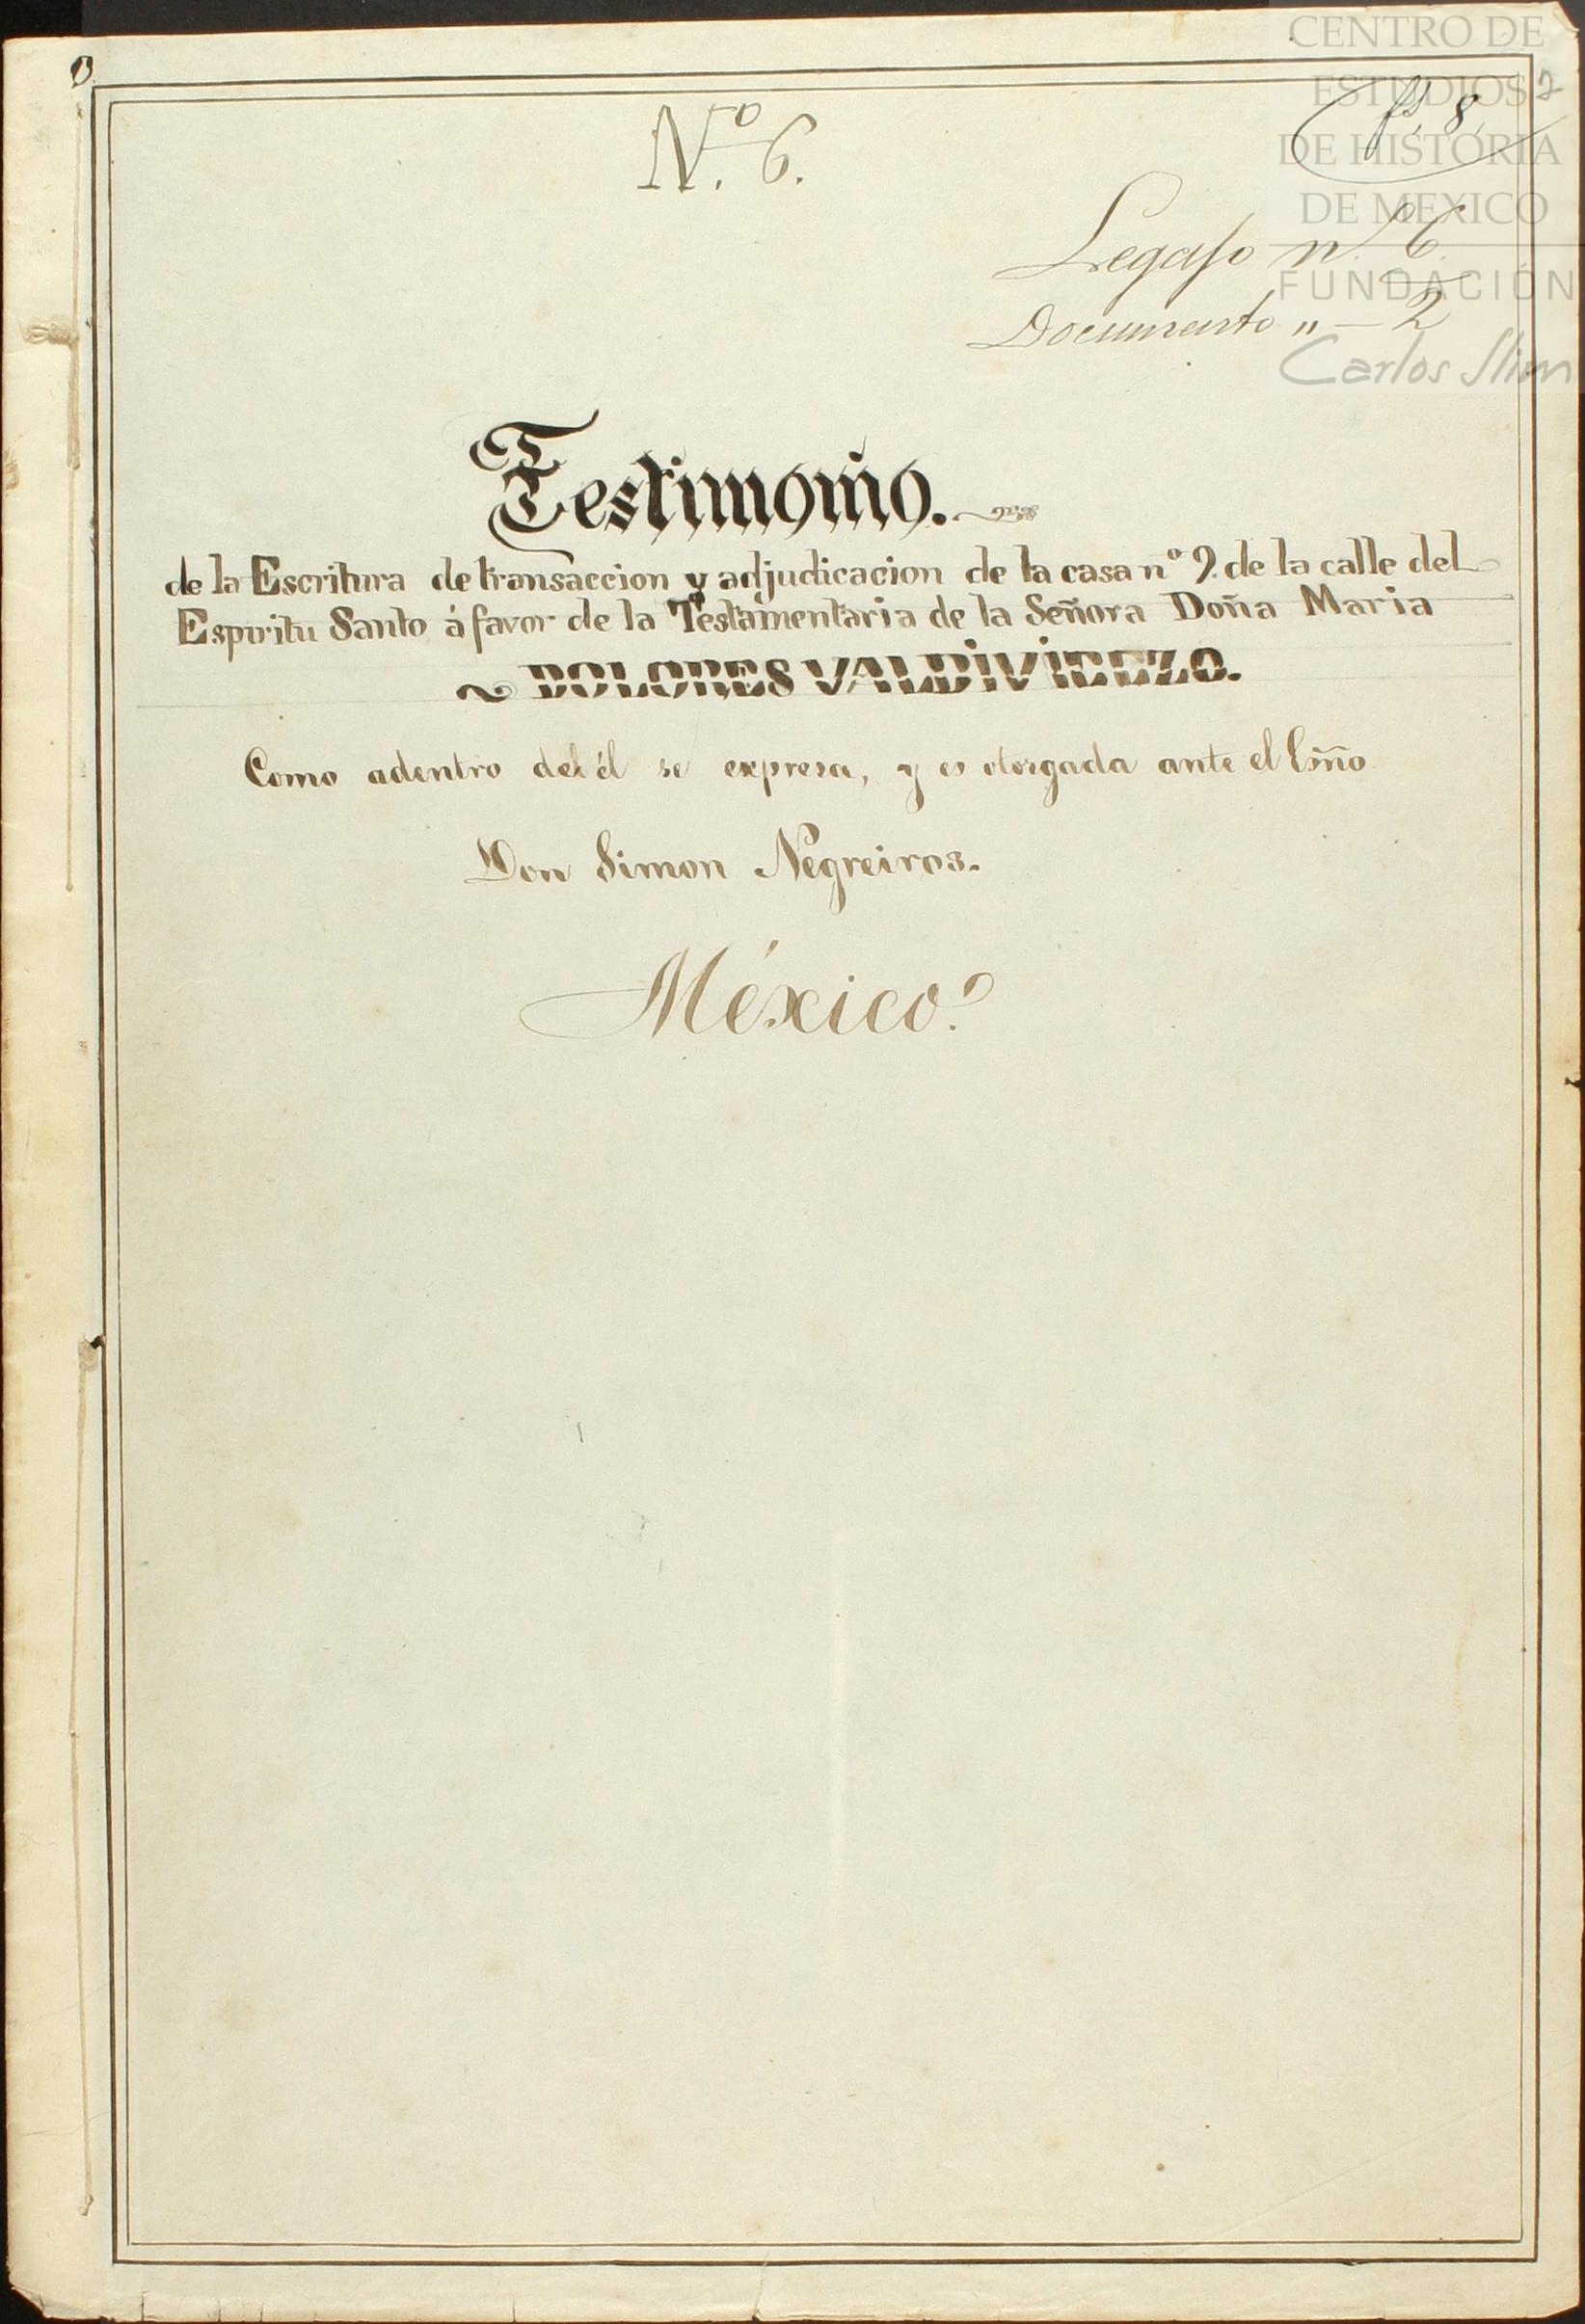 CENTRO DE
ESTUDIOS
DE HISTORIA
DE MEXICO
FUNDACIÓN
Carlos Slim
2
fs. 8.
Nº. 6.
Legajo nº. 6.
Documento „ — 2
Testimonio.
de la Escritura de transaccion y adjudicacion de la casa nº 9. de la calle del
Espiritu Santo á favor de la Testamentaria de la Señora Doña Maria
DOLORES VALDIVIELZO.
Como adentro del él se expresa, y es otorgada ante el Esño
Don Simon Negreiros.
México.